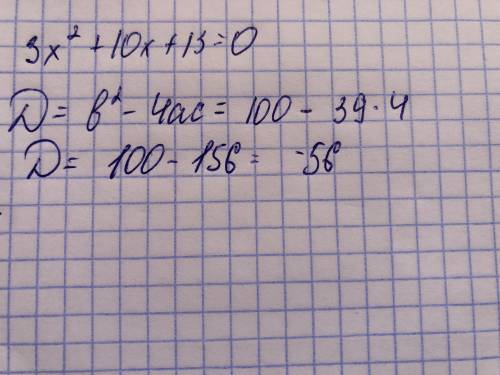 3x² + 10x + 13 = 0
D = в² - 4ac = 100 - 39 · 4
D = 100 - 156 = -56